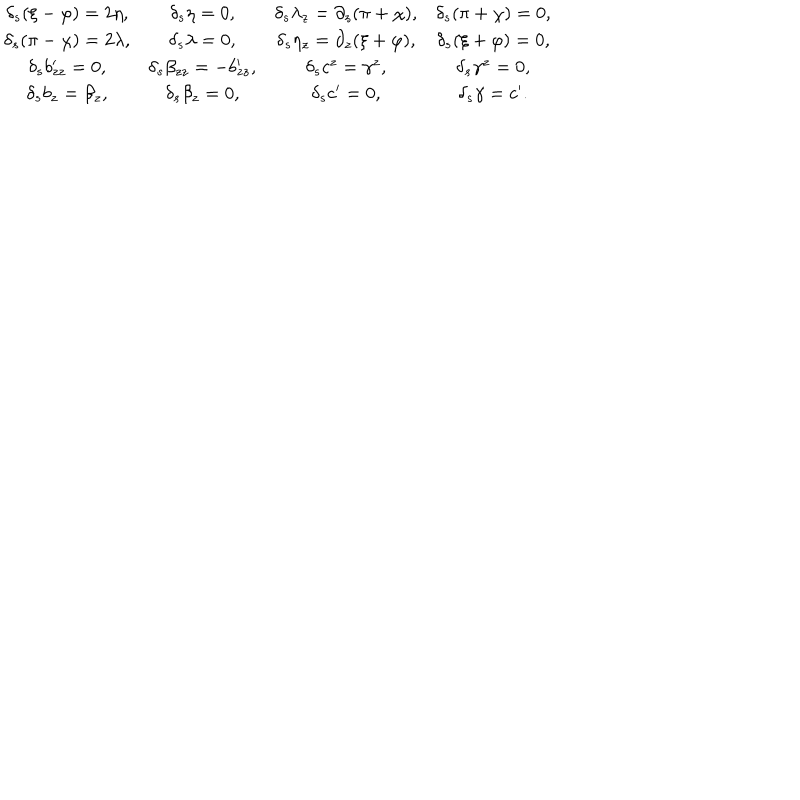 δₛ(ξ − φ) = 2η, δₛη = 0, δₛλ_z = ∂_z(π + χ), δₛ(π + χ) = 0,
δₛ(π − χ) = 2λ, δₛλ = 0, δₛη_z = ∂_z(ξ + φ), δₛ(ξ + φ) = 0,
δₛb′_zz = 0, δₛβ_zz = −b′_zz, δₛc^z = γ^z, δₛγ^z = 0,
δₛb_z = β_z, δₛβ_z = 0, δₛc′ = 0, δₛγ = c′.